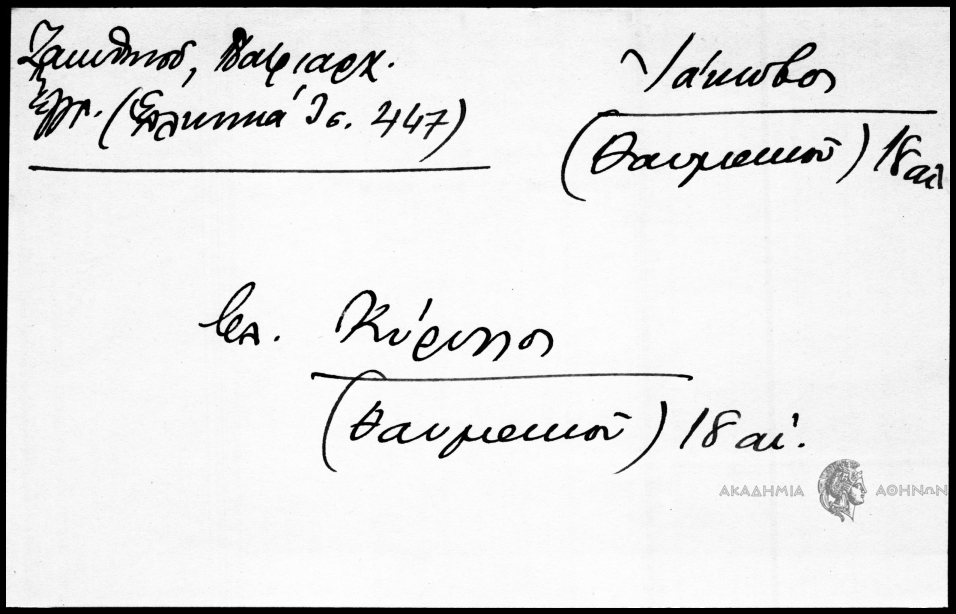 Ζακυθηνοῦ, Πατριαρχ.
ἔγγρ. (Ἑλληνικά 3 σ. 447)
Ἰάκωβος
(Θαυμακοῦ) 18 αἰ.
βλ. Κύριλλος
(Θαυμακοῦ) 18 αἰ.
ΑΚΑΔΗΜΙΑ ΑΘΗΝΩΝ